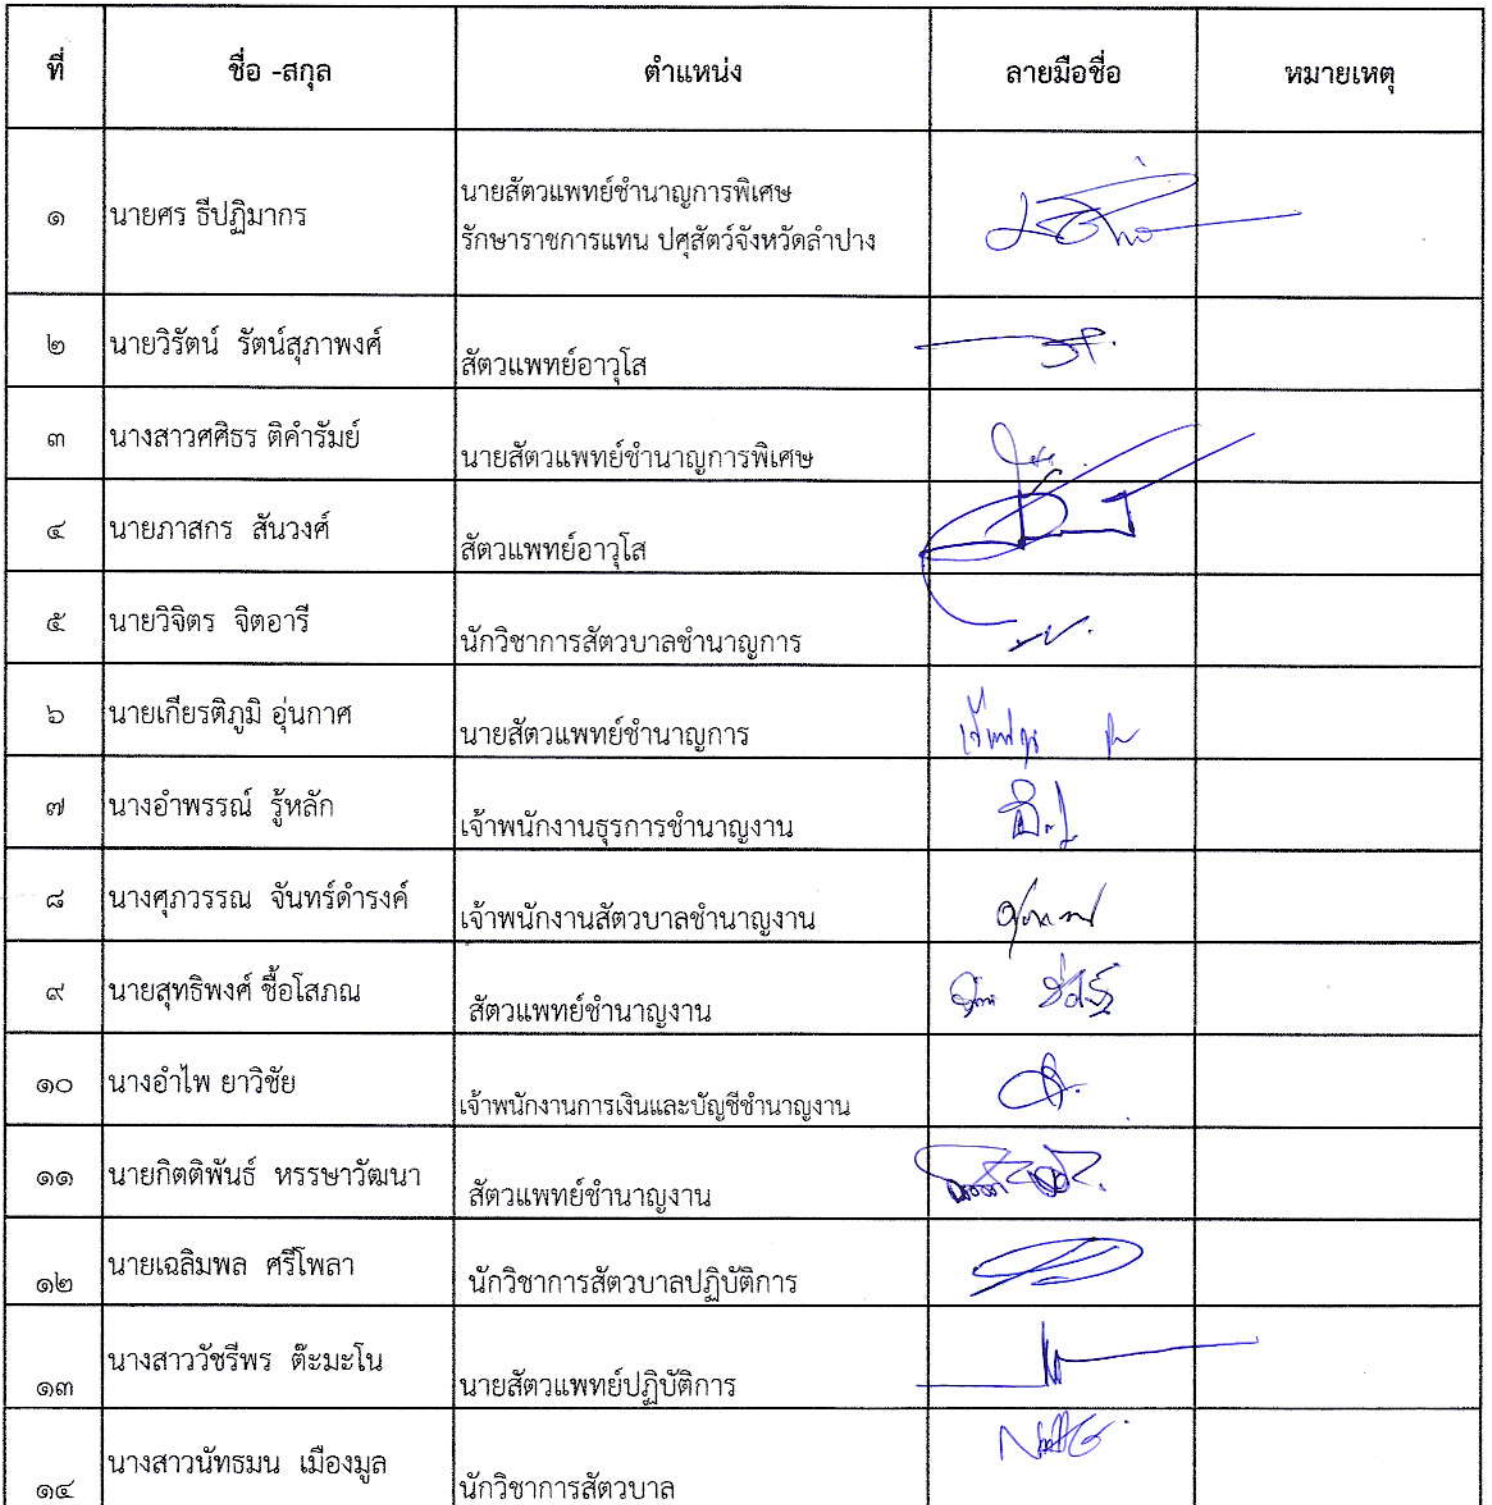 ที่ ชื่อ -สกุล ตำแหน่ง ลายมือชื่อ หมายเหตุ
๑ นายศร ธีปฏิมากร นายสัตวแพทย์ชำนาญการพิเศษ
รักษาราชการแทน ปศุสัตว์จังหวัดลำปาง
๒ นายวิรัตน์ รัตน์สุภาพงศ์ สัตวแพทย์อาวุโส
๓ นางสาวศศิธร ติคำรัมย์ นายสัตวแพทย์ชำนาญการพิเศษ
๔ นายภาสกร สันวงศ์ สัตวแพทย์อาวุโส
๕ นายวิจิตร จิตอารี นักวิชาการสัตวบาลชำนาญการ
๖ นายเกียรติภูมิ อุ่นกาศ นายสัตวแพทย์ชำนาญการ
๗ นางอำพรรณ์ รู้หลัก เจ้าพนักงานธุรการชำนาญงาน
๘ นางศุภวรรณ จันทร์ดำรงค์ เจ้าพนักงานสัตวบาลชำนาญงาน
๙ นายสุทธิพงศ์ ซื้อโสภณ สัตวแพทย์ชำนาญงาน
๑๐ นางอำไพ ยาวิชัย เจ้าพนักงานการเงินและบัญชีชำนาญงาน
๑๑ นายกิตติพันธ์ หรรษาวัฒนา สัตวแพทย์ชำนาญงาน
๑๒ นายเฉลิมพล ศรีโพลา นักวิชาการสัตวบาลปฏิบัติการ
๑๓ นางสาววัชรีพร ต๊ะมะโน นายสัตวแพทย์ปฏิบัติการ
๑๔ นางสาวนัทธมน เมืองมูล นักวิชาการสัตวบาล